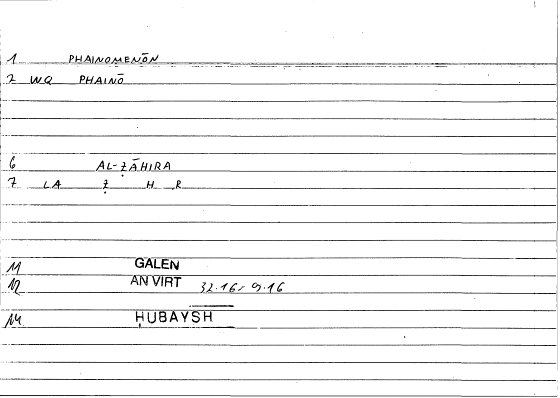 1 PHAINOMENŌN
2 WQ PHAINŌ
6 AL-ẒĀHIRA
7 LA Ẓ H R
11 GALEN
12 AN VIRT 32.16 / 9.16
14 ḤUBAYSH